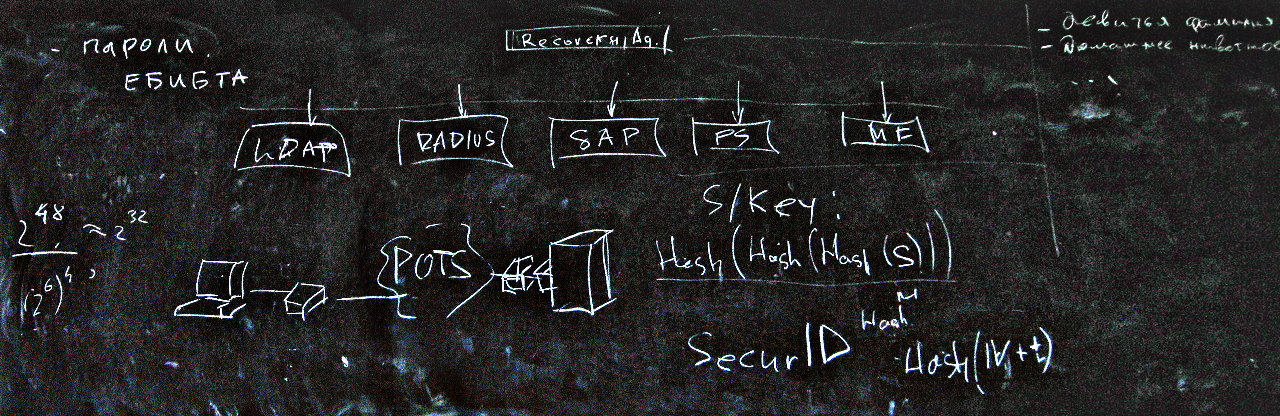 - пароли.
ЕБИБТА
Recovery Ag.
- девичья фамилия
- Домашнее животное
LDAP
RADIUS
SAP
PS
ME
2^48 ≈ 2^32
(2^6)^4
POTS
S/Key:
Hash(Hash(Hash(S)))
Hash^N
SecurID
Hash(IV++t)